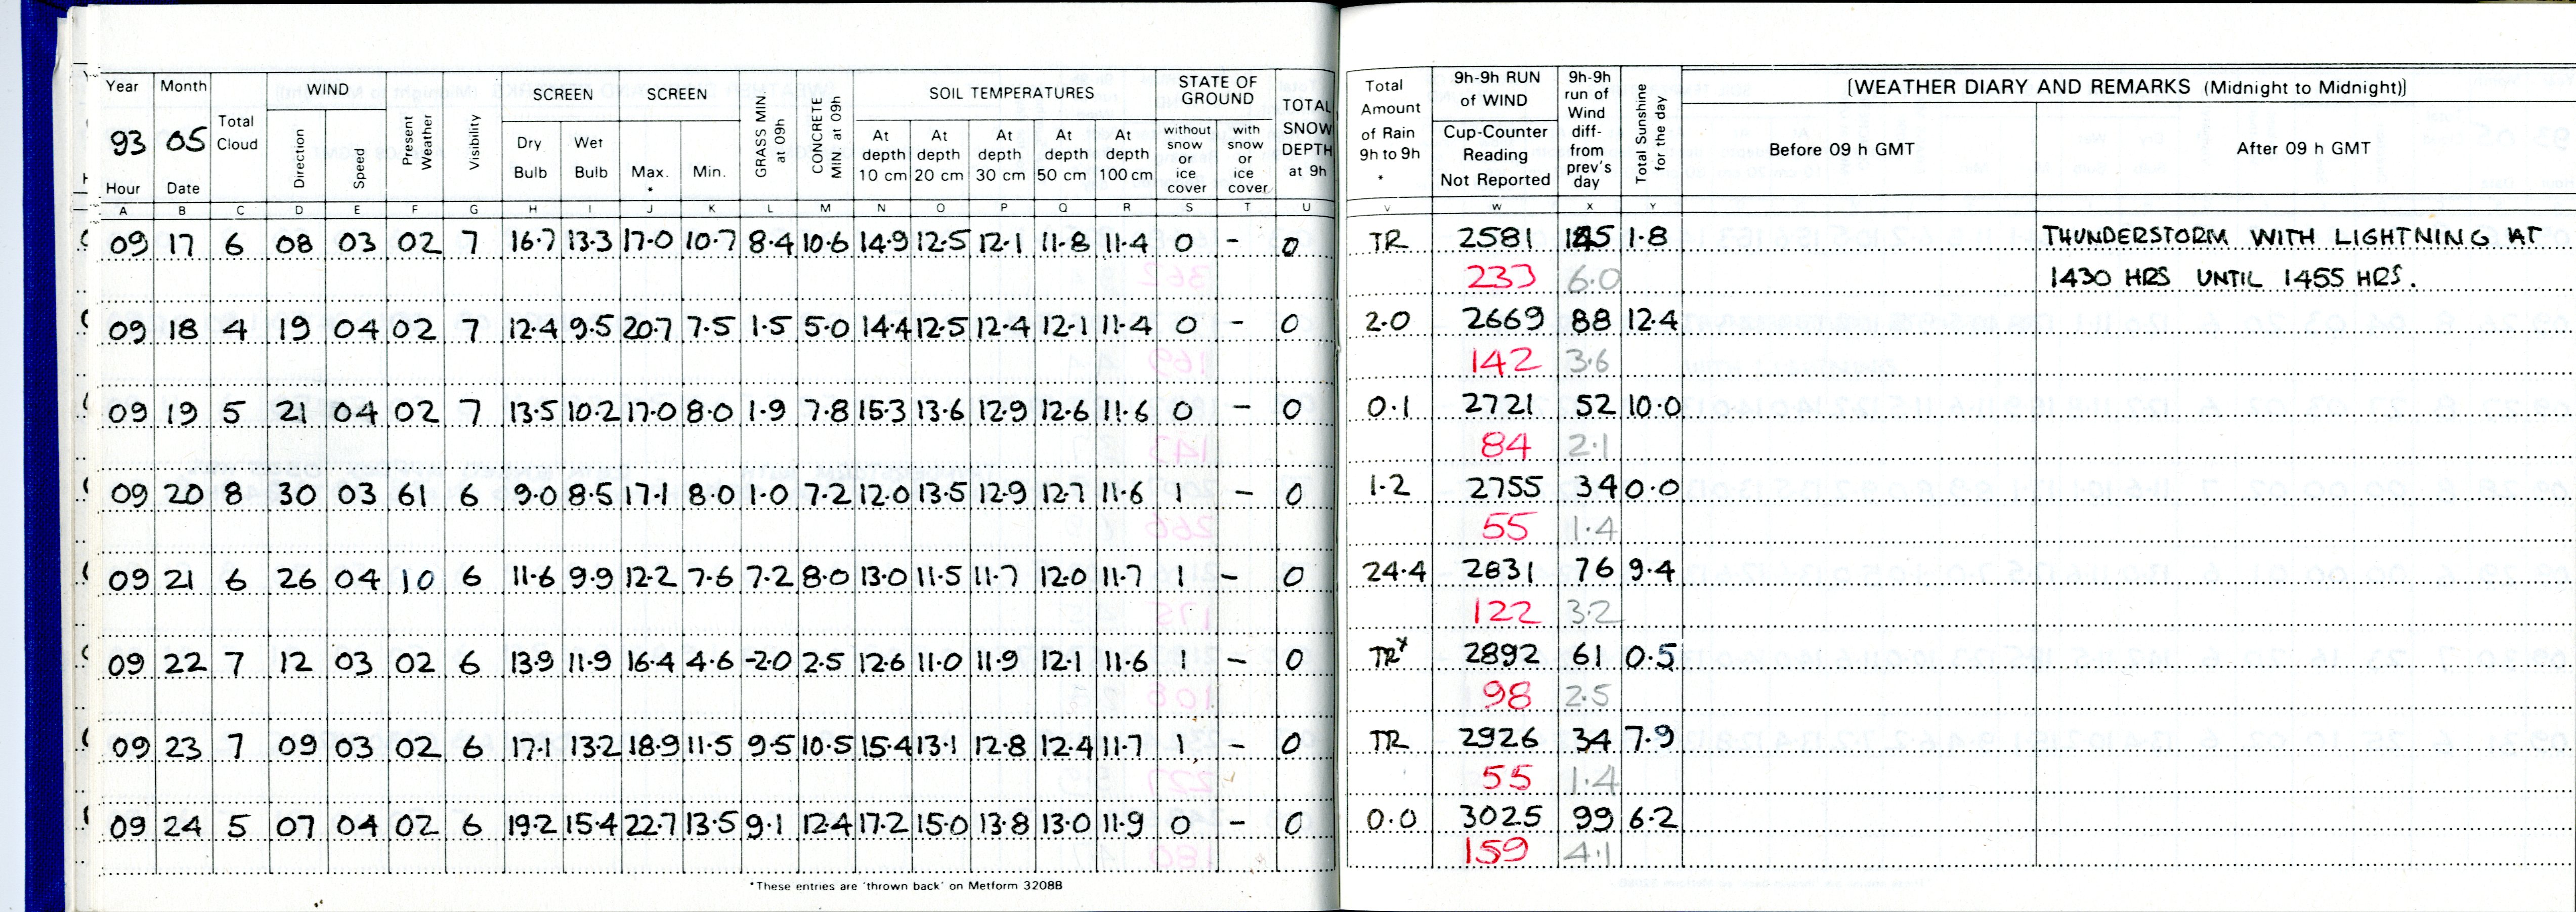 Year Month Total Cloud WIND Present Weather Visibility SCREEN SCREEN GRASS MIN. at 09h CONCRETE MIN at 09h SOIL TEMPERATURES STATE OF GROUND TOTAL SNOW DEPTH at 9h Total Amount of Rain 9h to 9h * 9h-9h RUN of WIND 9h-9h run of Wind diff- from prev's day Total Sunshine for the day (WEATHER DIARY AND REMARKS (Midnight to Midnight))
93 05 Direction Speed Dry Bulb Wet Bulb Max. * Min. At depth 10 cm At depth 20 cm At depth 30 cm At depth 50 cm At depth 100 cm without snow or ice cover with snow or ice cover Cup-Counter Reading Not Reported Before 09 h GMT After 09 h GMT
Hour Date
A B C D E F G H I J K L M N O P Q R S T U V W X Y
09 17 6 08 03 02 7 16.7 13.3 17.0 10.7 8.4 10.6 14.9 12.5 12.1 11.8 11.4 0 - 0 TR 2581 145 1.8 THUNDERSTORM WITH LIGHTNING AT
233 6.0 1430 HRS UNTIL 1455 HRS.
09 18 4 19 04 02 7 12.4 9.5 20.7 7.5 1.5 5.0 14.4 12.5 12.4 12.1 11.4 0 - 0 2.0 2669 88 12.4
142 3.6
09 19 5 21 04 02 7 13.5 10.2 17.0 8.0 1.9 7.8 15.3 13.6 12.9 12.6 11.6 0 - 0 0.1 2721 52 10.0
84 2.1
09 20 8 30 03 61 6 9.0 8.5 17.1 8.0 1.0 7.2 12.0 13.5 12.9 12.7 11.6 1 - 0 1.2 2755 34 0.0
55 1.4
09 21 6 26 04 10 6 11.6 9.9 12.2 7.6 7.2 8.0 13.0 11.5 11.7 12.0 11.7 1 - 0 24.4 2831 76 9.4
122 3.2
09 22 7 12 03 02 6 13.9 11.9 16.4 4.6 -2.0 2.5 12.6 11.0 11.9 12.1 11.6 1 - 0 TRx 2892 61 0.5
98 2.5
09 23 7 09 03 02 6 17.1 13.2 18.9 11.5 9.5 10.5 15.4 13.1 12.8 12.4 11.7 1 - 0 TR 2926 34 7.9
55 1.4
09 24 5 07 04 02 6 19.2 15.4 22.7 13.5 9.1 12.4 17.2 15.0 13.8 13.0 11.9 0 - 0 0.0 3025 99 6.2
159 4.1
*These entries are 'thrown back' on Metform 3208B